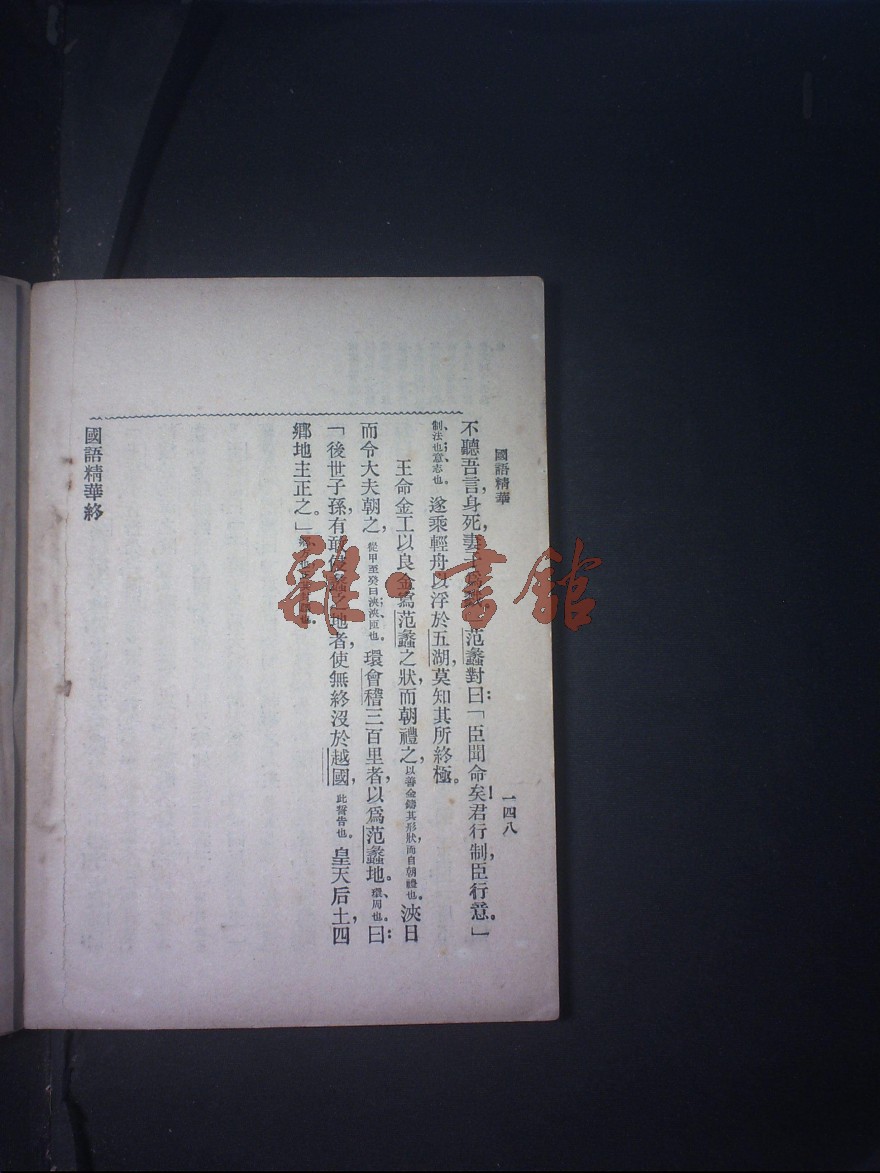 國語精華
一四八
不聽吾言，身死，妻子爲戮。」范蠡對曰：「臣聞命矣！君行制，臣行意。」
制、法也；意、志也。遂乘輕舟以浮於五湖，莫知其所終極。
王命金工以良金寫范蠡之狀，而朝禮之，以善金鑄其形狀，而自朝禮也。浹日
而令大夫朝之，從甲至癸曰浹；浹、匝也。環會稽三百里者，以爲范蠡地。環、周也。曰：
「後世子孫，有敢侵蠡之地者，使無終沒於越國，此誓告也。皇天后土，四
鄉地主正之。」
國語精華終
雜·書館